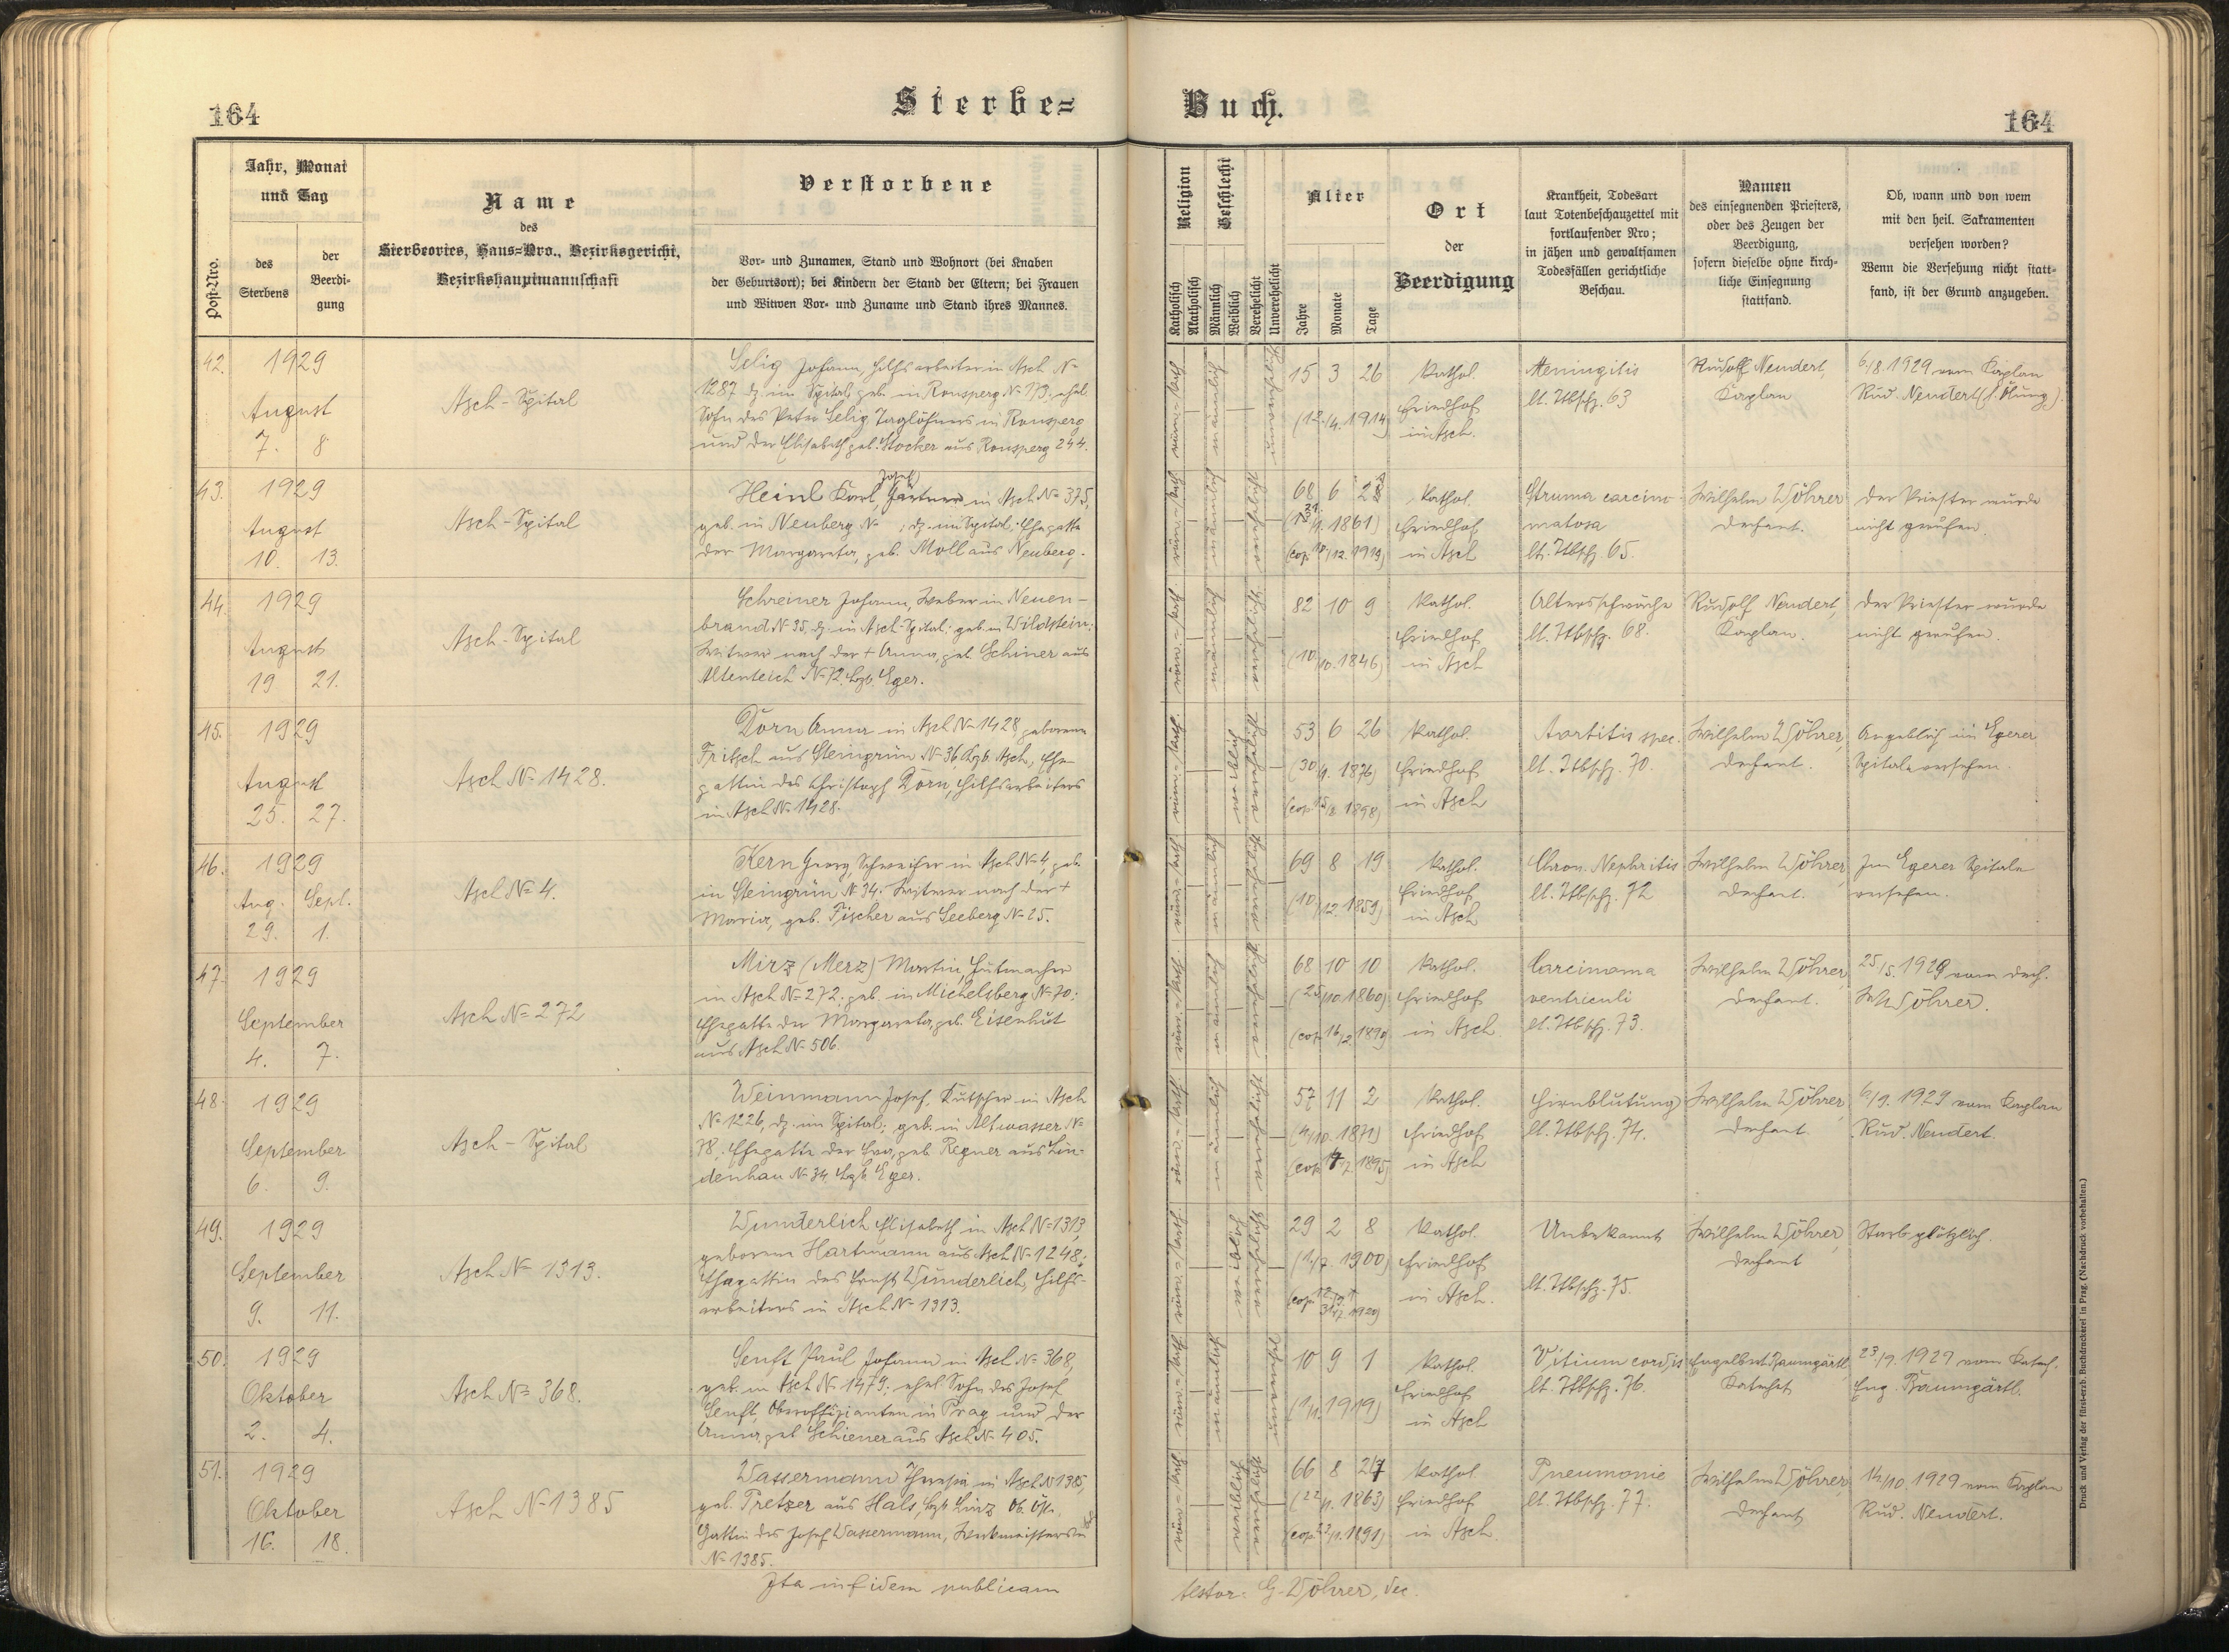 164
Sterbe=
Jahr, Monat
und Tag
Post-Nro.
des
Sterbens
der
Beerdi-
gung
Name
des
Sterbeortes, Haus=Nro., Bezirksgericht,
Bezirkshauptmannschaft
Verstorbene
Vor- und Zunamen, Stand und Wohnort (bei Knaben
der Geburtsort); bei Kindern der Stand der Eltern; bei Frauen
und Witwen Vor- und Zuname und Stand ihres Mannes.
42.
1929
August
7. 8
Asch-Spital
Selig Johann, Hilfsarbeiter in Asch N=
1287 dz. im Spital, geb. in Ronsperg N= 173; ehel.
Sohn des Peter Selig, Taglöhners in Ronsperg
und der Elisabeth geb. Stocker aus Ronsperg 244.
43.
1929
August
10. 13.
Asch-Spital
Josef
Heinl Karl, Gärtner in Asch N= 375,
geb. in Neuberg N= ; dz. im Spital; Ehegatte
der Margareta, geb. Moll aus Neuberg.
44.
1929
August
19 21.
Asch-Spital
Schreiner Johann, Weber in Neuen-
brand N= 35, dz. in Asch-Spital; geb. in Wildstein;
Witwer nach der + Anna, geb. Schiner aus
Altenteich N= 12, Bzb. Eger.
45.
1929
August
25. 27.
Asch N= 1428.
Dörn Anna in Asch N= 1428, geborene
Fritsch aus Steingrün N= 36, Bzb. Asch, Ehe-
gattin des Christoph Dörn, Hilfsarbeiters
in Asch N= 1428.
46.
1929
Aug. Sept.
29. 1.
Asch N= 4.
Kern Georg, in Asch N= 4, geb.
in Steingrün N= 34; Witwer nach der +
Maria, geb. Fischer aus Seeberg N= 25.
47.
1929
September
4. 7.
Asch N= 272
Mirz (Merz) Martin, Hutmacher
in Asch N= 272; geb. in Michelsberg N= 70;
Ehegatte der Margareta, geb. Eisenhut
aus Asch N= 506.
48.
1929
September
6. 9.
Asch-Spital
Weinmann Josef, Kutscher in Asch
N= 1226, dz. im Spital; geb. in Altwasser N=
78; Ehegatte der Eva, geb. Regner aus Lin-
denhau N= 34, Bzb. Eger.
49.
1929
September
9. 11.
Asch N= 1313.
Wunderlich Elisabeth in Asch N= 1313,
geborene Hartmann aus Asch N= 1248;
Ehegattin des Ernst Wunderlich, Hilfs-
arbeiters in Asch N= 1313.
50.
1929
Oktober
2. 4.
Asch N= 368.
Senft Paul Johann in Asch N= 368,
geb. in Asch N= 1479; ehel. Sohn des Josef
Senft, Oberoffizianten in Prag und der
Anna, geb. Schiener aus Asch N= 405.
51.
1929
Oktober
16. 18.
Asch N= 1385
Wassermann Theresia in Asch N= 1385,
geb. Pretzer aus Hals, Bzb. Linz Ob. Öst.,
Gattin des Josef Wassermann, Werkmeisters in
N= 1385.
Ita in fidem publicam
Buch.
164
Religion
Katholisch
Akatholisch
Geschlecht
Männlich
Weiblich
Verehelicht
Unverehelicht
Alter
Jahre
Monate
Tage
Ort
der
Beerdigung
Krankheit, Todesart
laut Totenbeschauzettel mit
fortlaufender Nro;
in jähen und gewaltsamen
Todesfällen gerichtliche
Beschau.
Namen
des einsegnenden Priesters,
oder des Zeugen der
Beerdigung,
sofern dieselbe ohne kirch=
liche Einsegnung
stattfand.
Ob, wann und von wem
mit den heil. Sakramenten
versehen worden?
Wenn die Versehung nicht statt=
fand, ist der Grund anzugeben.
röm-kath.
männlich
15 3 26
(12./4. 1914)
Kathol.
Friedhof
in Asch.
Meningitis
lt. Ttbschz. 63
Rudolf Neudert,
Kaplan
6./8. 1929 vom Kaplan
Rud. Neudert (h. Ölung).
röm-kath.
männlich
68 6
1861)
(cop. 1919)
Kathol.
Friedhof
in Asch
Struma carcino-
matosa
lt. Ttbschz. 65.
Wilhelm Wöhrer
Dechant.
Der Priester wurde
nicht gerufen.
röm-kath.
männlich
82 10 9
(10./10. 1846)
Kathol.
Friedhof
in Asch
Altersschwäche
lt. Ttbschz. 68.
Rudolf Neudert,
Kaplan.
Der Priester wurde
nicht gerufen.
röm-kath.
weiblich
53 6 26
(30./1. 1876)
(cop. 15/8. 1898)
Kathol.
Friedhof
in Asch
Aortitis spec.
lt. Ttbschz. 70.
Wilhelm Wöhrer,
Dechant.
Angeblich im Egerer
Spitale versehen.
röm-kath.
männlich
69 8 19
(10./12. 1859)
Kathol.
Friedhof
in Asch
Chron. Nephritis
lt. Ttbschz. 72
Wilhelm Wöhrer,
Dechant.
Im Egerer Spitale
versehen.
röm-kath.
männlich
68 10 10
(25./10. 1860)
(cop. 16/2. 1890)
Kathol.
Friedhof
in Asch
Carcinoma
ventriculi
lt. Ttbschz. 73.
Wilhelm Wöhrer,
Dechant.
25/5. 1929 vom Dech.
W. Wöhrer.
röm-kath.
männlich
57 11 2
(4./10. 1871)
(cop. 1895)
Kathol.
Friedhof
in Asch
Hirnblutung
lt. Ttbschz. 74.
Wilhelm Wöhrer,
Dechant.
6/9. 1929 vom Kaplan
Rud. Neudert.
röm-kath.
weiblich
29 2 8
(1./7. 1900)
Kathol.
Friedhof
in Asch.
Unbekannt
lt. Ttbschz. 75.
Wilhelm Wöhrer,
Dechant
Starb plötzlich.
röm-kath.
männlich
10 9 1
(1./1. 1919)
Kathol.
Friedhof
in Asch
Vitium cordis
lt. Ttbschz. 76.
Engelbert Baumgärtl,
Katechet
23/9. 1929 vom Katech.
Eng. Baumgärtl.
röm-kath.
weiblich
66 8 24
(22./1. 1863)
(cop. 1891)
Kathol.
Friedhof
in Asch
Pneumonie
lt. Ttbschz. 77.
Wilhelm Wöhrer
Dechant
14/10. 1929 vom Kaplan
Rud. Neudert.
testor: G. Wöhrer, dec.
Druck und Verlag der fürst-erzb. Buchdruckerei in Prag. (Nachdruck vorbehalten.)